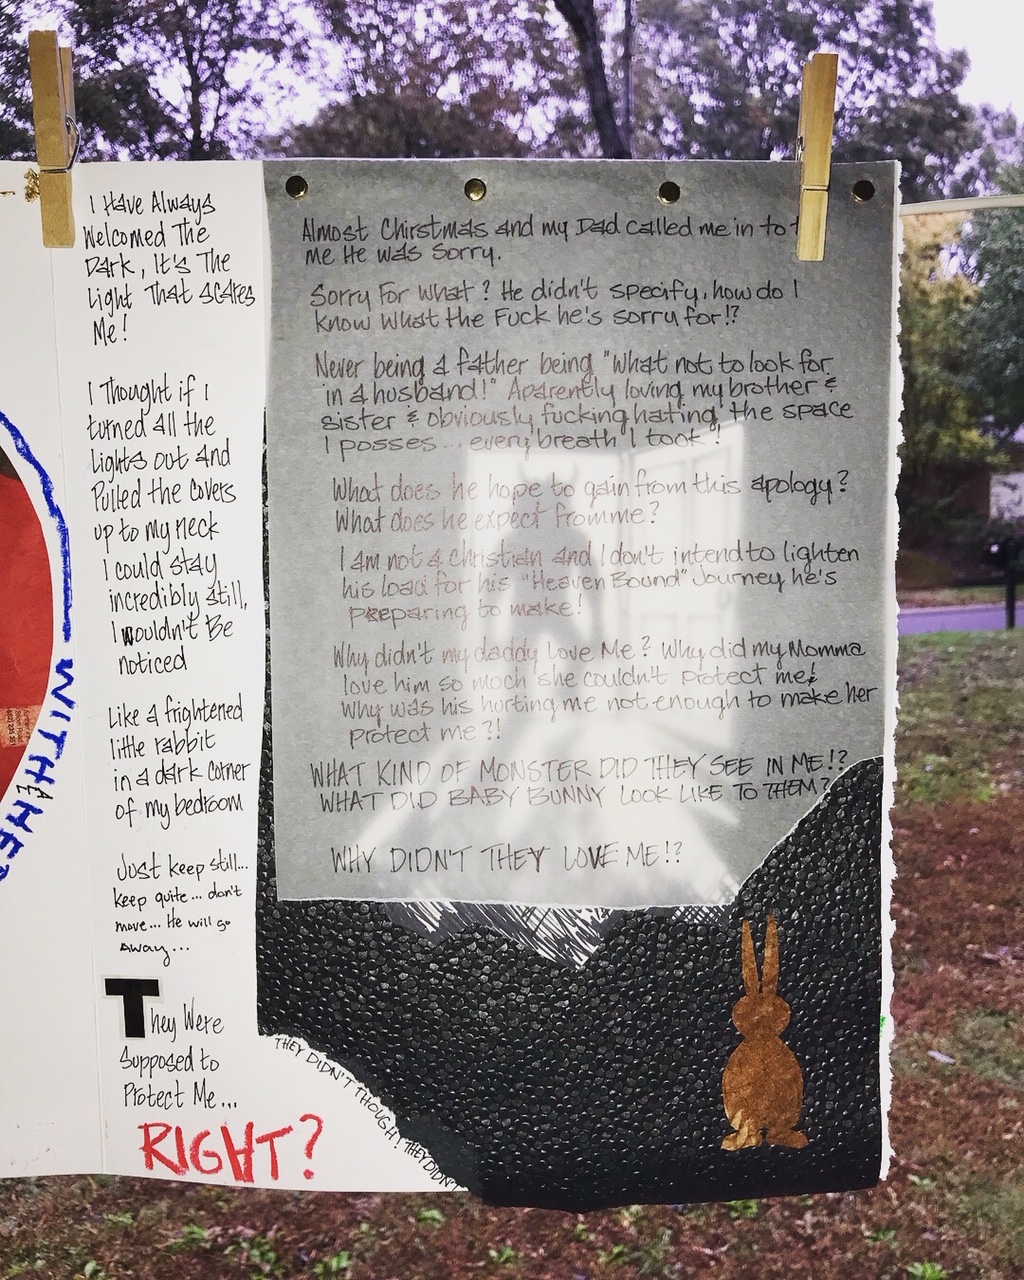 I Have Always
Welcomed The
Dark, It's The
Light That scares
Me!
I Thought if I
turned all the
Lights out and
Pulled the covers
up to my neck
I could stay
incredibly still,
I wouldn't Be
noticed
Like a frightened
little rabbit
in a dark corner
of my bedroom
Just keep still...
keep quite... don't
move... He will go
away...
They Were
Supposed to
Protect Me...
RIGHT?
Almost Chirstmas and my Dad called me in to t
me He was sorry.
Sorry For what? He didn't specify, how do I
know what the Fuck he's sorry for!?
Never being a father being "What not to look for
in a husband!" Aparently loving my brother &
sister & obviously fucking hating the space
I posses... every breath I took!
What does he hope to gain from this apology?
What does he expect from me?
I am not a Christian and I don't intend to lighten
his load for his "Heaven Bound" Journey he's
preparing to make!
Why didn't my daddy Love Me? Why did my Momma
love him so much she couldn't protect me!
Why was his hurting me not enough to make her
protect me?!
WHAT KIND OF MONSTER DID THEY SEE IN ME!?
WHAT DID BABY BUNNY LOOK LIKE TO THEM?
WHY DIDN'T THEY LOVE ME!?
THEY DIDN'T THOUGH! THEY DIDN'T
WITH HER